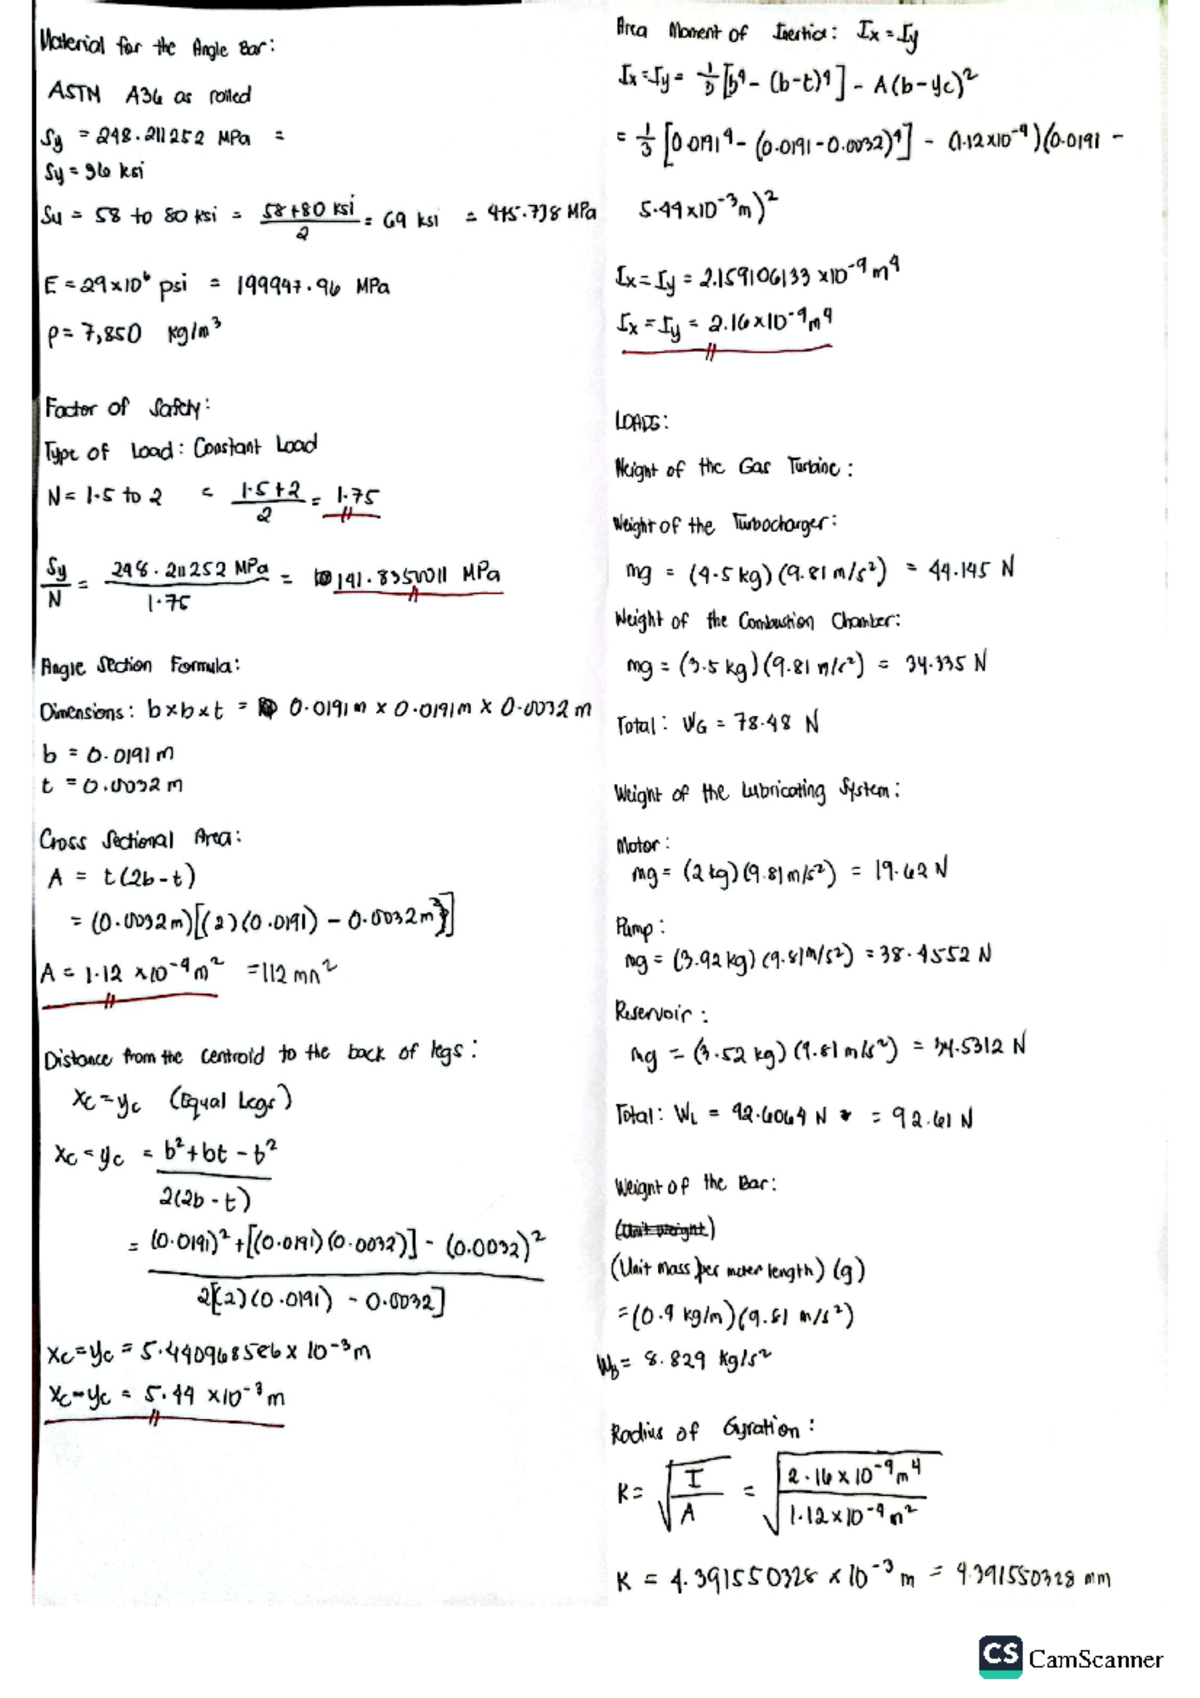 Material for the Angle Bar:
ASTM A36 as rolled
Sy = 248.211252 MPa =
Sy = 36 ksi
Su = 58 to 80 ksi = (58+80 ksi)/2 = 69 ksi = 475.738 MPa
E = 29x10^6 psi = 199947.96 MPa
ρ = 7,850 kg/m^3
Factor of Safety:
Type of Load: Constant Load
N = 1.5 to 2 = (1.5+2)/2 = 1.75
Sy/N = 248.211252 MPa / 1.75 = 141.8350011 MPa
Angle Section Formula:
Dimensions: b x b x t = 0.0191m x 0.0191m x 0.0032 m
b = 0.0191 m
t = 0.0032 m
Cross Sectional Area:
A = t(2b-t)
= (0.0032m)[(2)(0.0191) - 0.0032m]
A = 1.12 x10^-4 m^2 = 112 mm^2
Distance from the centroid to the back of legs:
xc = yc (Equal Legs)
xc = yc = (b^2+bt-t^2) / 2(2b-t)
= (0.0191)^2+[(0.0191)(0.0032)] - (0.0032)^2 / 2[(2)(0.0191) - 0.0032]
xc = yc = 5.440968586 x 10^-3 m
xc = yc = 5.44 x10^-3 m
Area Moment of Inertia: Ix = Iy
Ix = Iy = 1/3 [b^4 - (b-t)^4] - A(b-yc)^2
= 1/3 [0.0191^4 - (0.0191-0.0032)^4] - (1.12x10^-4)(0.0191 -
5.44x10^-3m)^2
Ix = Iy = 2.159106133 x10^-9 m^4
Ix = Iy = 2.16x10^-9 m^4
LOADS:
Weight of the Gas Turbine:
Weight of the Turbocharger:
mg = (4.5 kg)(9.81 m/s^2) = 44.145 N
Weight of the Combustion Chamber:
mg = (3.5 kg)(9.81 m/s^2) = 34.335 N
Total: WG = 78.48 N
Weight of the Lubricating System:
Motor:
mg = (2 kg)(9.81m/s^2) = 19.62 N
Pump:
mg = (3.92 kg)(9.81m/s^2) = 38.4552 N
Reservoir:
mg = (3.52 kg)(9.81 m/s^2) = 34.5312 N
Total: WL = 92.6064 N = 92.61 N
Weight of the Bar:
(Unit weight)
(Unit mass per meter length)(g)
= (0.9 kg/m)(9.81 m/s^2)
Wb = 8.829 kg/s^2
Radius of Gyration:
K = √(I/A) = √(2.16 x 10^-9 m^4 / 1.12x10^-4 m^2)
K = 4.391550328 x 10^-3 m = 4.391550328 mm
CS CamScanner